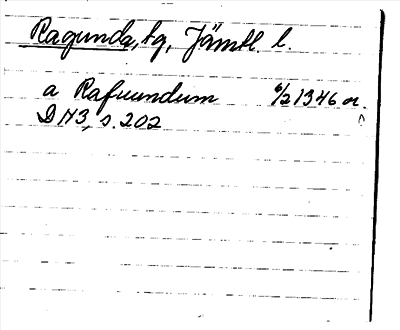 Ragunda, tg, Jämtl. l.
a Rafuundum 6/2 1346 or.
DN3, s. 202